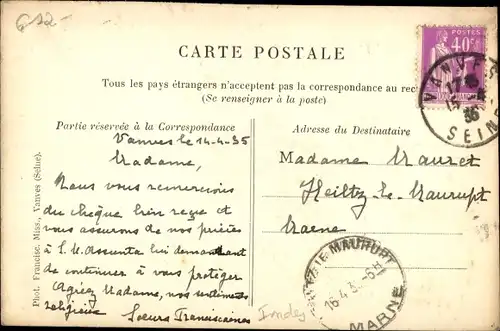 612-
CARTE POSTALE
Tous les pays étrangers n'acceptent pas la correspondance au rec
(Se renseigner à la poste)
POSTES
40c
VANVES
SEINE
Partie réservée à la Correspondance
Adresse du Destinataire
Vanves le 14-4-35
Madame,
Nous vous remercions
du chèque bien reçu et
vous assurons de nos prières
à S. M. Assunta lui demandant
de continuer à vous protéger
Agréez Madame, nos sentiments
religieux
Soeurs Franciscaines
Madame Mauret
Heiltz-le-Maurupt
Marne
LE MAURUPT
16-4 35
MARNE
Phot. Francisc. Miss., Vanves (Seine).